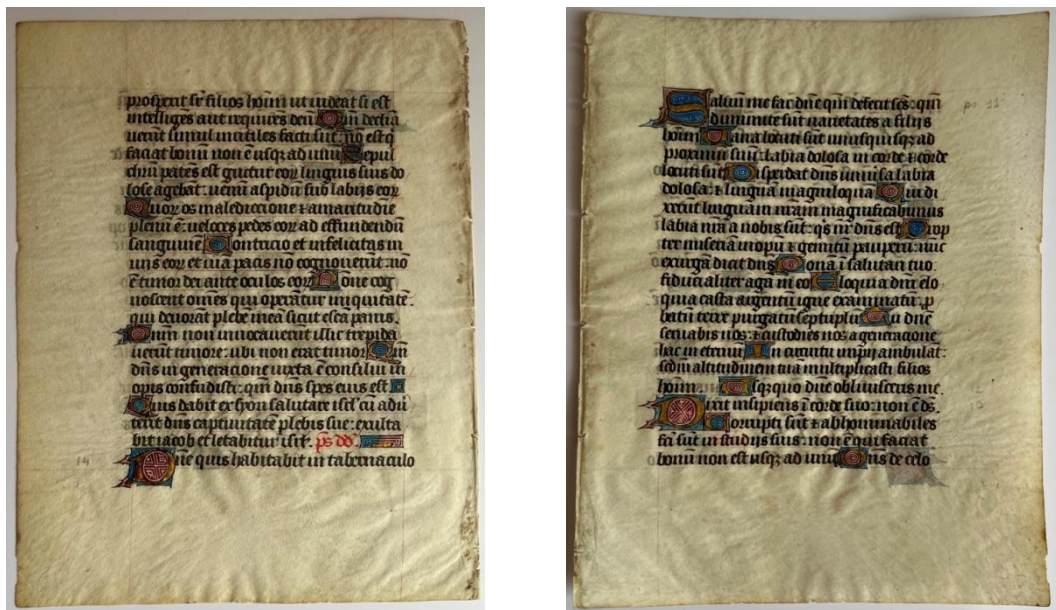 prospexit sr̄ filios hoīm ut uideat si est
intelligēs aut requirēs deū Om̄ declīa
uerūt simul inutiles facti sūt: nō est q̄
faciat bonū non ē usq; ad unū Sepul
chrū patēs est guttur eoꝝ linguis suis do
lose agebāt: uenēū aspidū sub labijs eoꝝ
Quoꝝ os malediccione ⁊ amaritudīe
plenū ē: ueloces pedes eoꝝ ad effundendū
sanguinē Contricio et infelicitas in
uijs eoꝝ et uiā pacis nō cognouerūt: nō
ē timor dei ante oculos eoꝝ Nōne cog
noscent omēs qui operātur iniquitatē:
qui deuorāt plebē meā sicut escā panis.
Dnm̄ non inuocauerūt illic trepida
uerūt timore: ubi non erat timor Qm̄
dn̄s in generacione iusta ē consiliū in
opis confudisti: qm̄ dn̄s spes eius est
Quis dabit ex syon salutare isrl̄: cū adū
terit dn̄s captiuitatē plebis sue: exulta
bit iacob et letabitur isrl̄. p̄s dd̄.
14 Dn̄e quis habitabit in tabernaculo
Saluū me fac dn̄e qm̄ defecit sc̄s: qm̄
diminute sūt ueritates a filijs
hoīm Uana locuti sūt unusquisq; ad
proximū suū: labia dolosa in corde ⁊ corde
locuti sūt Disperdat dn̄s uniūsa labia
dolosa: ⁊ linguā magniloquā Qui di
xerūt linguam nr̄am magnificabimus
labia nr̄a a nobis sūt: q̄s nr̄ dn̄s est Prop
ter miseriā inopū ⁊ gemitū pauperū: nūc
exurgā dicit dn̄s Ponā ī salutari tuo:
fiducialiter agā in eo Eloquia dn̄i elo
quia casta argentū igne examinatū: p̄
batū terre purgatū septuplū Tu dn̄e
seruabis nos: ⁊ custodies nos a generacione
hac in eternū In circuitu impij ambulāt:
sedm̄ altitudinem tuā multiplicasti filios
hoīm. Usq;quo dn̄e obliuisceris me
Dixit insipiens ī corde suo: non ē ds̄.
Corrupti sūt ⁊ abhominabiles
fc̄i sūt in studijs suis: non ē qui faciat
bonū non est usq; ad unū Dn̄s de celo